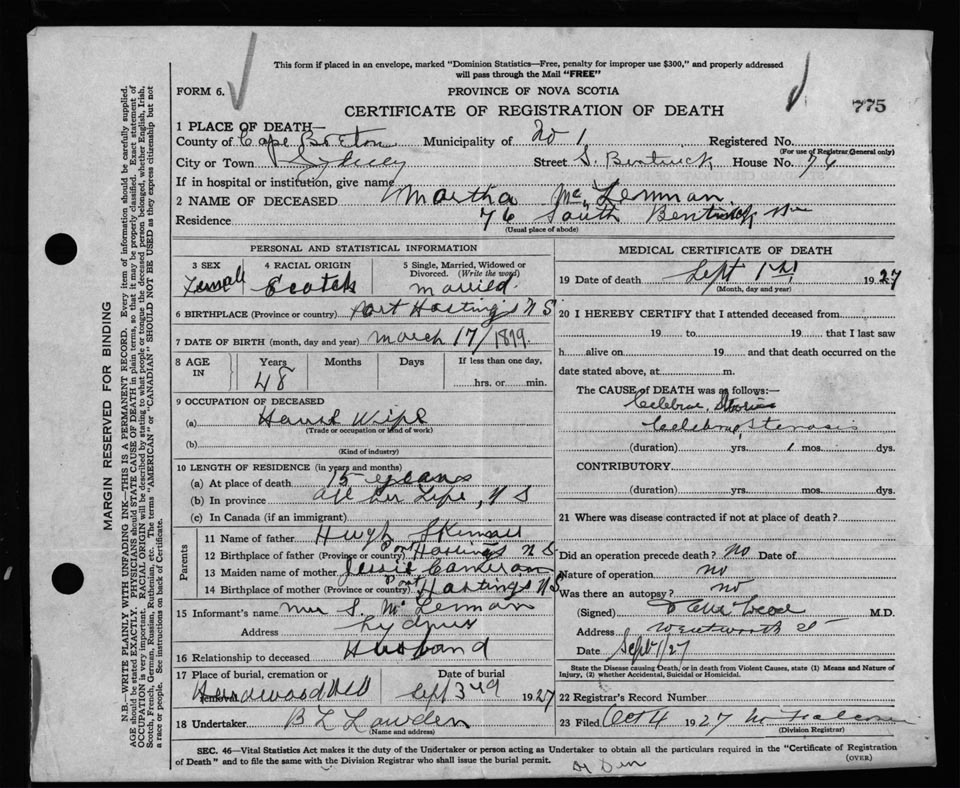 This form if placed in an envelope, marked "Dominion Statistics—Free, penalty for improper use $300," and properly addressed
will pass through the Mail "FREE"
FORM 6.
PROVINCE OF NOVA SCOTIA
CERTIFICATE OF REGISTRATION OF DEATH
775
1 PLACE OF DEATH—
County of Cape Breton Municipality of No 1 Registered No.
(For use of Registrar General only)
City or Town Sydney Street S. Bentinck House No. 76
If in hospital or institution, give name
2 NAME OF DECEASED Martha Mc Lennan
Residence 76 South Bentinck
(Usual place of abode)
PERSONAL AND STATISTICAL INFORMATION
3 SEX Female
4 RACIAL ORIGIN Scotch
5 Single, Married, Widowed or Divorced. (Write the word) Married
6 BIRTHPLACE (Province or country) Port Hastings N S
7 DATE OF BIRTH (month, day and year) March 17/1879
8 AGE IN Years 48 Months Days If less than one day, hrs. or min.
9 OCCUPATION OF DECEASED
(a) House Wife
(Trade or occupation or kind of work)
(b)
(Kind of industry)
10 LENGTH OF RESIDENCE (in years and months)
(a) At place of death 15 years
(b) In province all her Life, N S
(c) In Canada (if an immigrant)
Parents
11 Name of father Hugh Skinner
12 Birthplace of father (Province or country) Port Hastings N S
13 Maiden name of mother Jessie Cameron
14 Birthplace of mother (Province or country) Port Hastings N S
15 Informant's name S. Mc Lennan
Address Sydney
16 Relationship to deceased Husband
17 Place of burial, cremation or removal Hardwood Hill
Date of burial Sept 3rd 1927
18 Undertaker
(Name and address)
MEDICAL CERTIFICATE OF DEATH
19 Date of death Sept 1st 1927
(Month, day and year)
20 I HEREBY CERTIFY that I attended deceased from
19 to 19 that I last saw
h alive on 19 and that death occurred on the
date stated above, at m.
The CAUSE of DEATH was as follows:—
Stenosis
(duration) yrs. mos. dys.
CONTRIBUTORY
(duration) yrs. mos. dys.
21 Where was disease contracted if not at place of death?
Did an operation precede death? no Date of
Nature of operation no
Was there an autopsy? no
(Signed) M.D.
Address Wentworth St
Date Sept 1/27
State the Disease causing Death, or in death from Violent Causes, state (1) Means and Nature of Injury, (2) whether Accidental, Suicidal or Homicidal.
22 Registrar's Record Number
23 Filed Oct 4 1927
(Division Registrar)
SEC. 46—Vital Statistics Act makes it the duty of the Undertaker or person acting as Undertaker to obtain all the particulars required in the "Certificate of Registration
of Death" and to file the same with the Division Registrar who shall issue the burial permit.
(OVER)
MARGIN RESERVED FOR BINDING
N.B.—WRITE PLAINLY WITH UNFADING INK—THIS IS A PERMANENT RECORD. Every item of information should be carefully supplied.
AGE should be stated EXACTLY. PHYSICIANS should STATE CAUSE OF DEATH in plain terms, so that it may be properly classified. Exact statement of
OCCUPATION is very important. RACIAL ORIGIN will be described by stating to what people or tongue the deceased person belonged, whether English, Irish,
Scotch, French, German, Russian, Ruthenian, etc. The terms "AMERICAN" or "CANADIAN" SHOULD NOT BE USED as they express citizenship but not
a race or people. See instructions on back of Certificate.